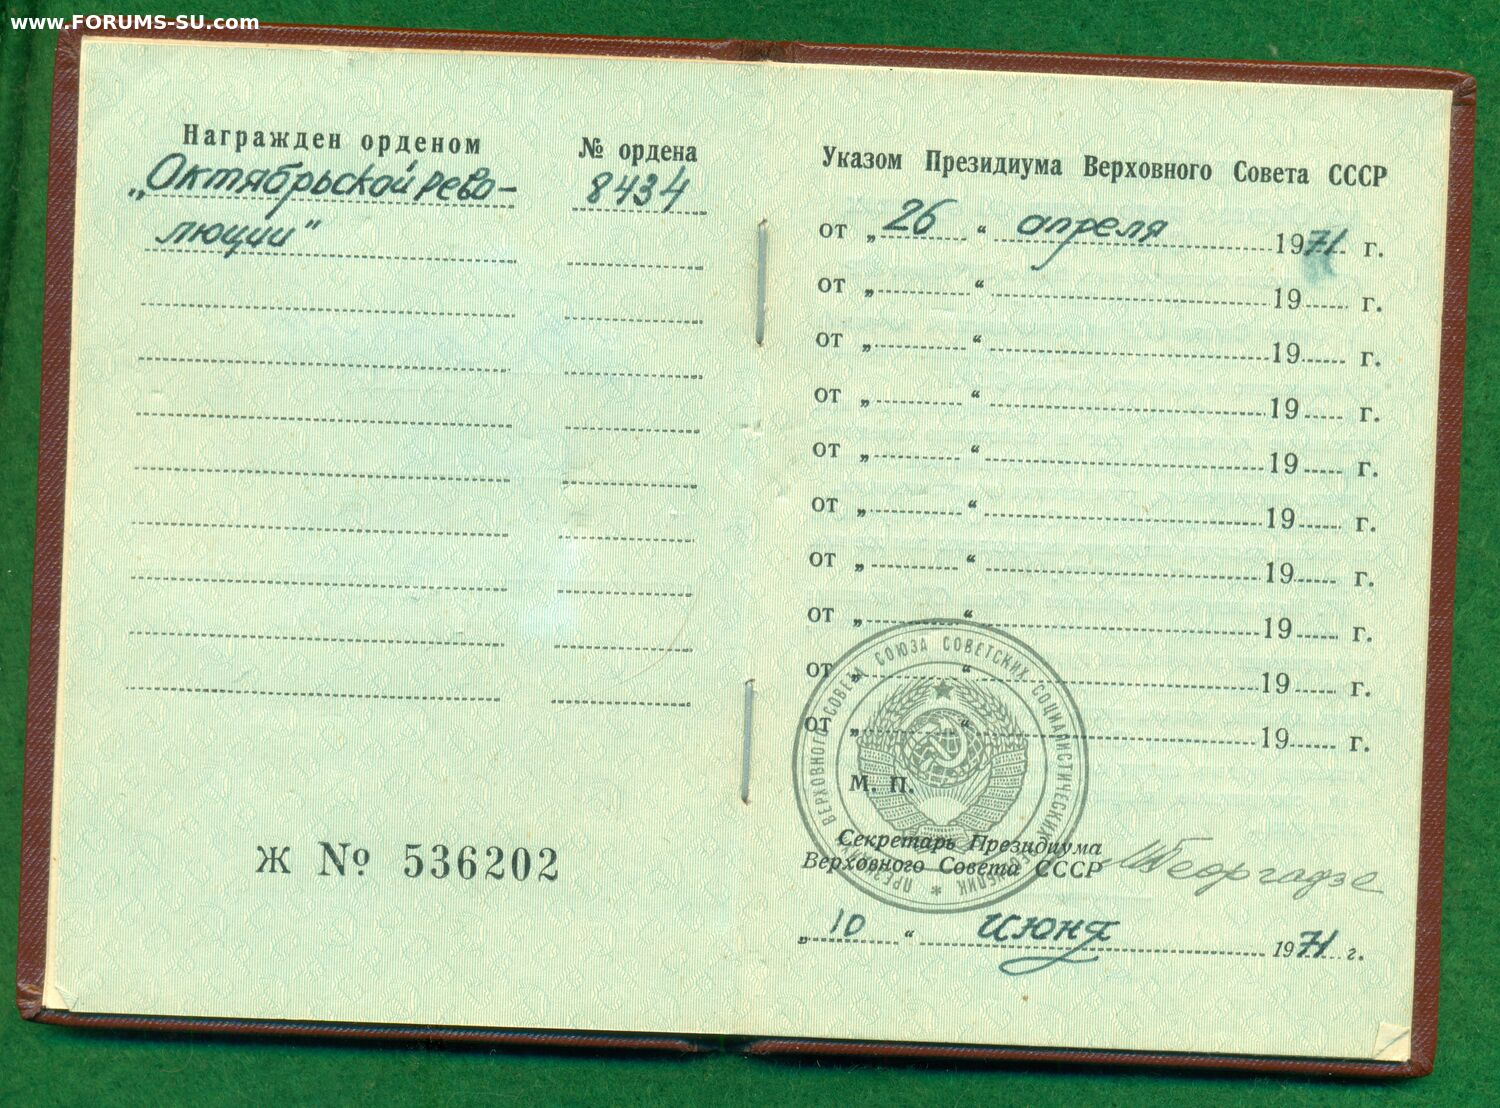 www.FORUMS-SU.com
Награжден орденом
„Октябрьской рево-
люции"
№ ордена
8434
Ж № 536202
Указом Президиума Верховного Совета СССР
от „ 26 “ апреля 1971 г.
от „ “ 19 г.
от „ “ 19 г.
от „ “ 19 г.
от „ “ 19 г.
от „ “ 19 г.
от „ “ 19 г.
от „ “ 19 г.
от „ “ 19 г.
от „ “ 19 г.
ПРЕЗИДИУМ ВЕРХОВНОГО СОВЕТА СОЮЗА СОВЕТСКИХ СОЦИАЛИСТИЧЕСКИХ РЕСПУБЛИК *
М. П.
Секретарь Президиума
Верховного Совета СССР
М Георгадзе
„ 10 “ июня 1971 г.